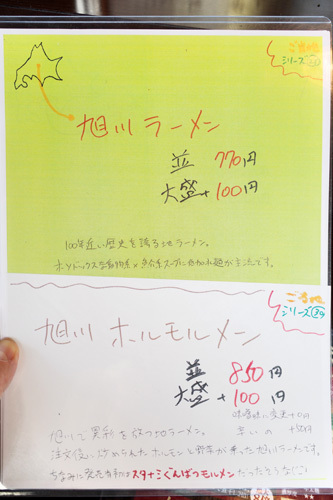 ご当地
シリーズ
旭川ラーメン
並 770円
大盛+100円
100年近い歴史を誇る地ラーメン。
オーソドックスな動物系×魚介系スープに
が主流です。
ご当地
シリーズ
旭川 ホルモルメン
並 850円
大盛+100円
味噌味に変更+0円
辛いの +50円
旭川で異彩を放つ地ラーメン。
注文後に炒められたホルモンと野菜が乗った旭川ラーメンです。
ちなみに発売当初はスタミどんばつモルメンだったそうな